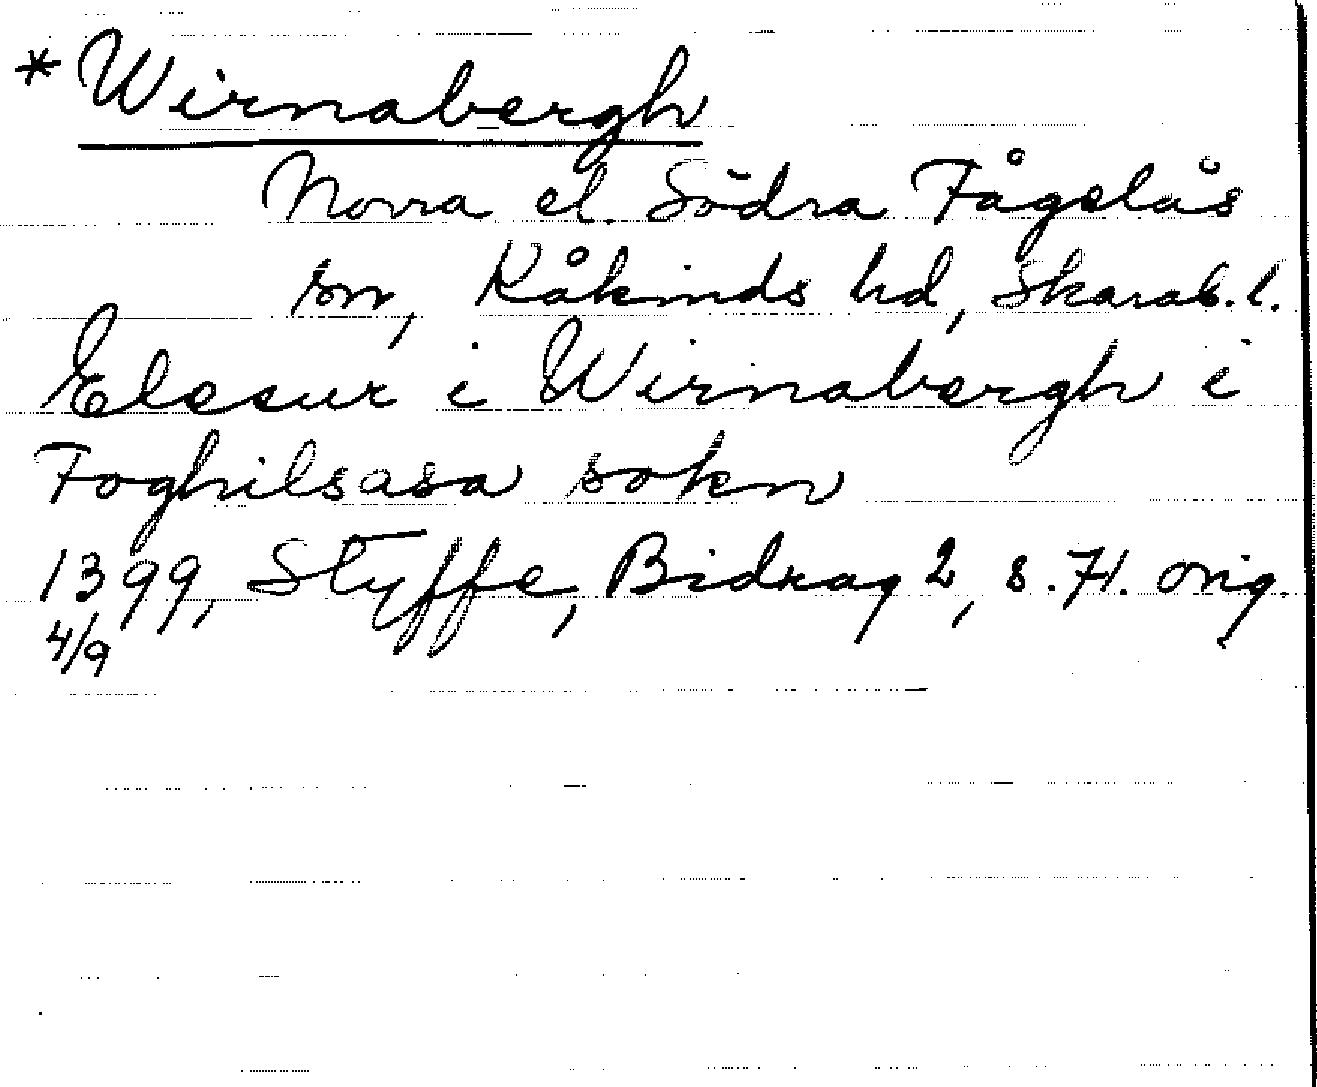 *Wirnabergh
Norra el. Södra Fågelås
sn, Kåkinds hd, Skarab. l.
Elesur i Wirnabergh i
Foghilsasa sokn
1399, Styffe, Bidrag 2, s. 71. orig.
4/9